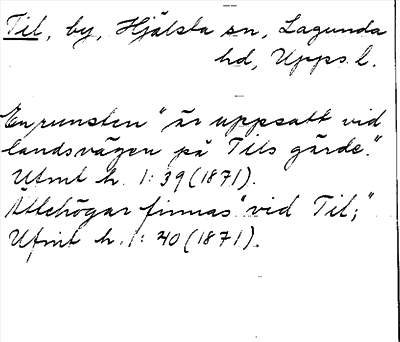 Til, by, Hjälsta sn, Lagunda
hd, Upps. l.
"En runsten" är uppsatt vid
landsvägen på Tils gärde."
Ufmt h. 1:39 (1871).
Ättehögar finnas "vid Til;"
Ufmt h. 1: 40 (1871).